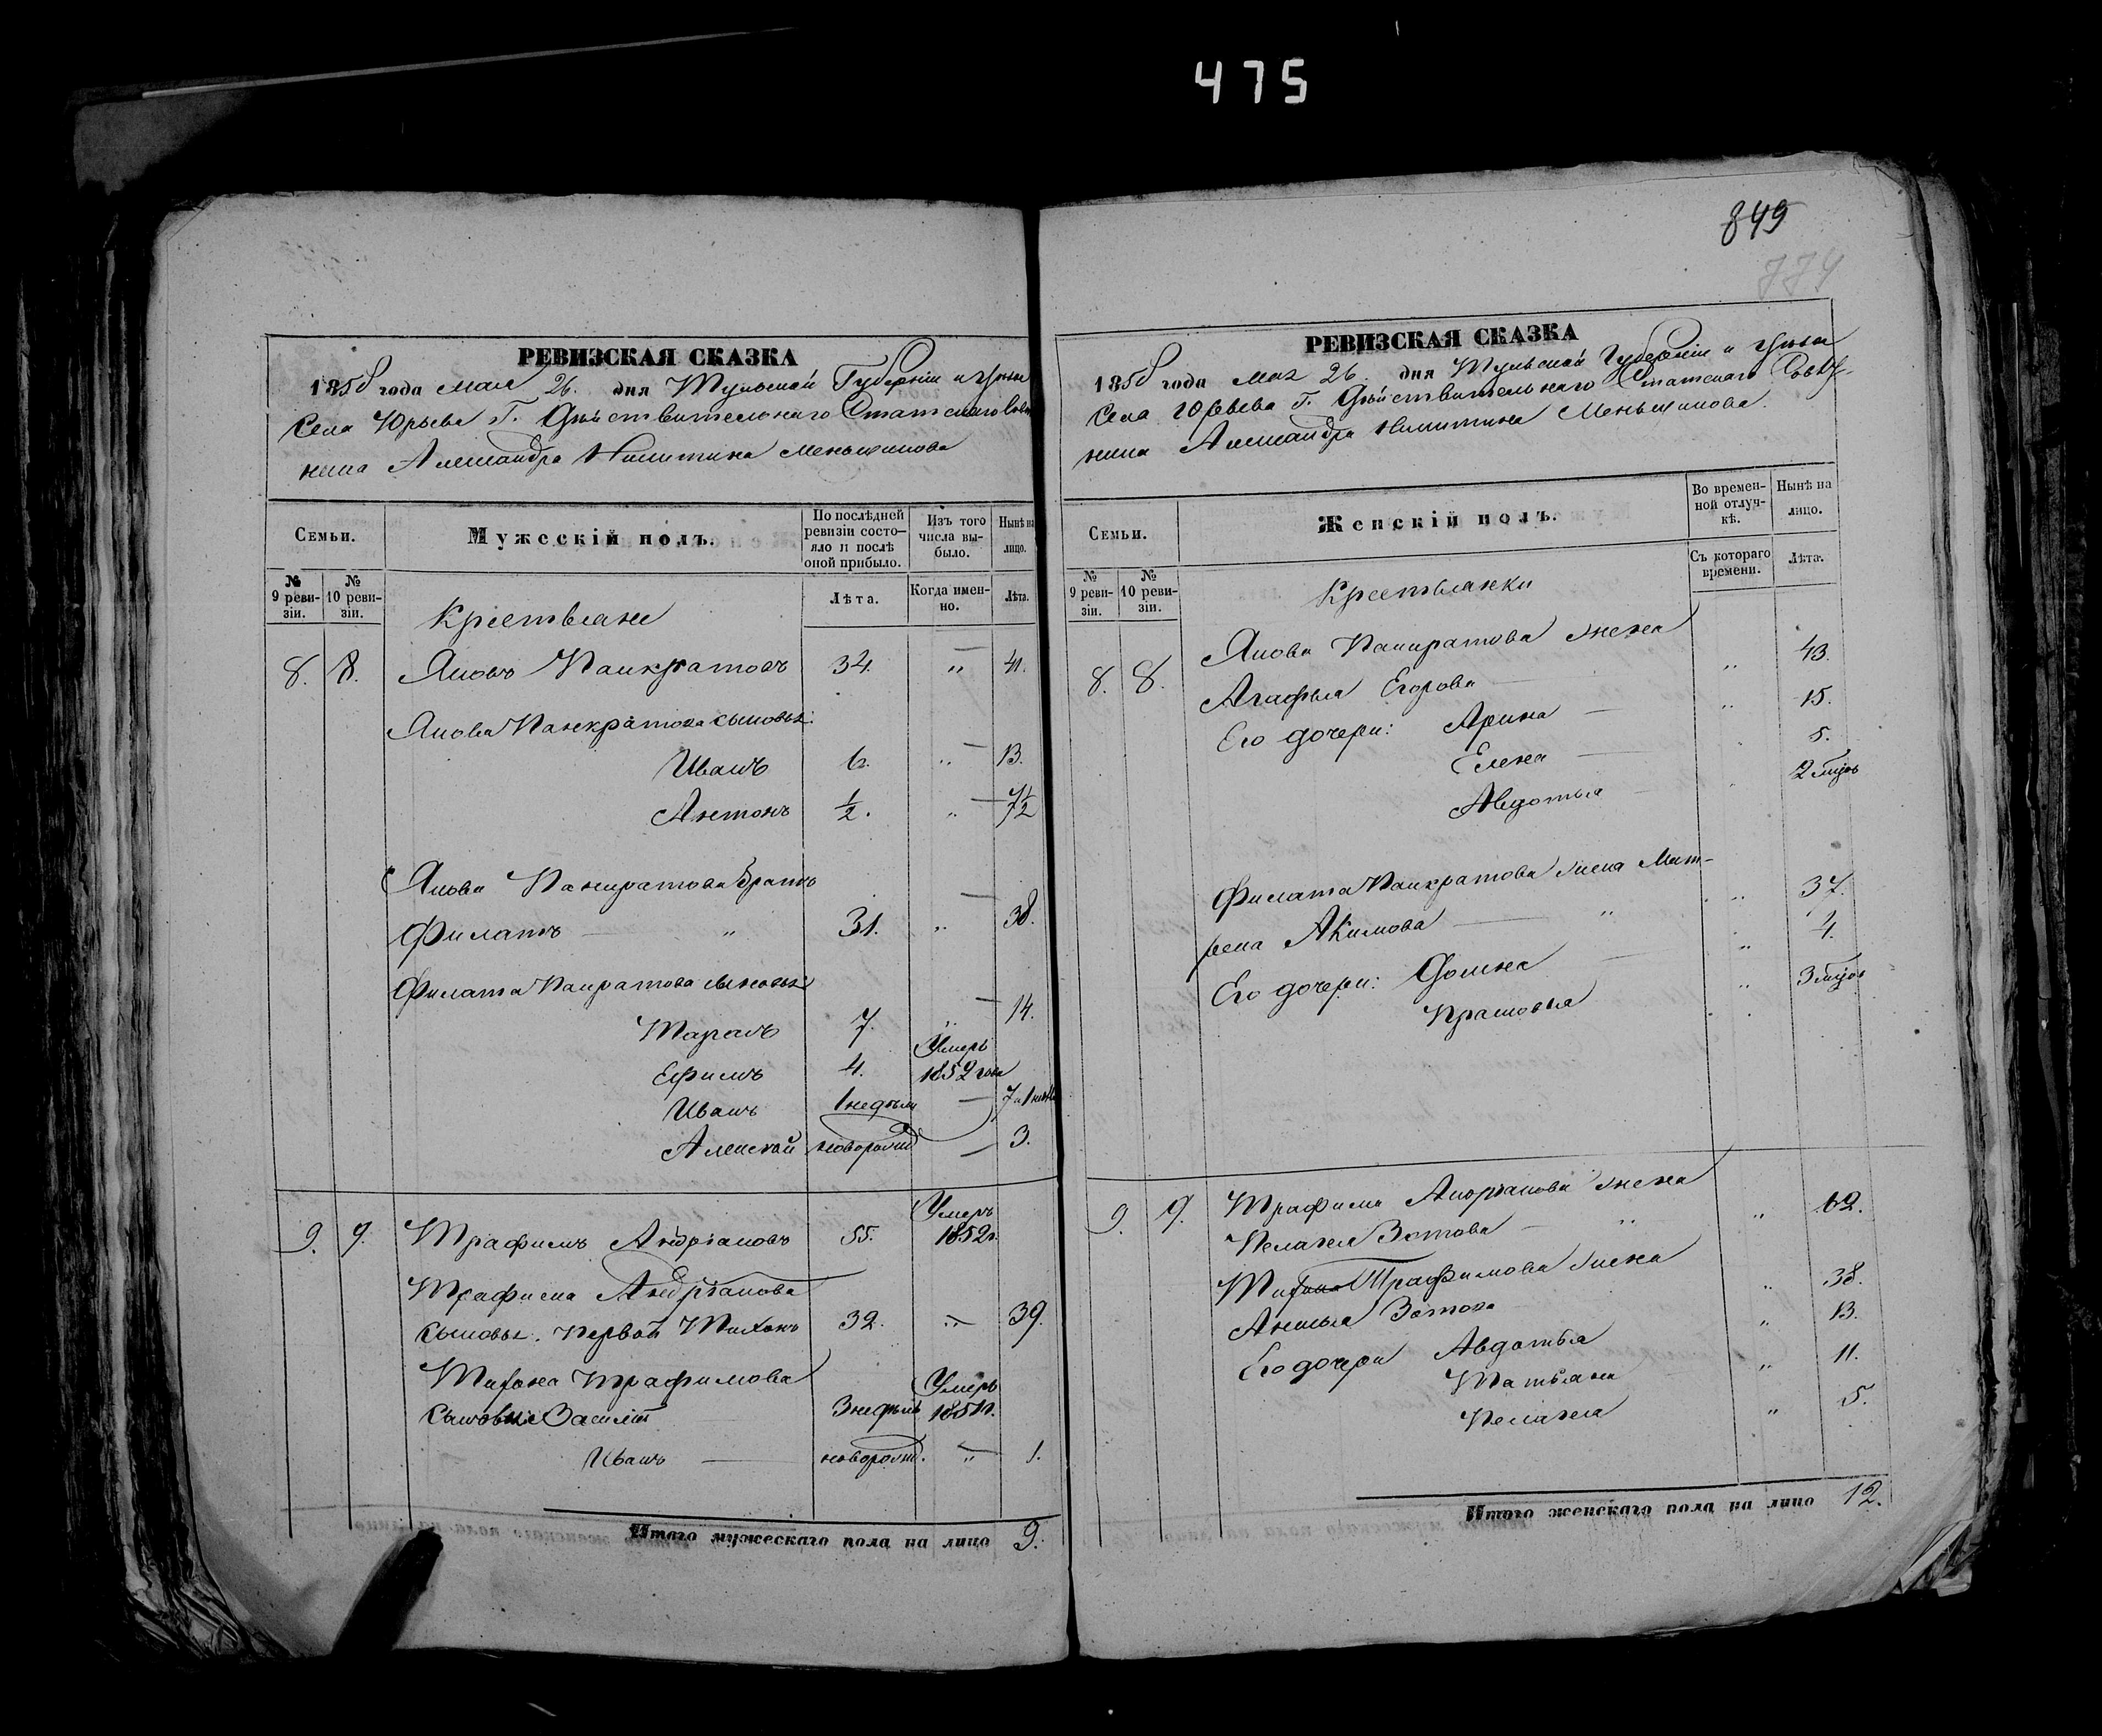 475
849
774
РЕВИЗСКАЯ СКАЗКА
1858 года мая 26. дня Тульской Губерніи и уезда
Села Юрьева Г. Действительнаго Статскаго Совет
ника Александра Никитина Меньшикова
Семьи.
Мужескій полъ.
По послѣдней ревизіи состояло и послѣ оной прибыло.
Изъ того числа выбыло.
Нынѣ на лицо.
№ 9 ревизіи.
№ 10 ревизіи.
Лѣта.
Когда именно.
Лѣта.
Крестьяне
8. 8. Яковъ Панкратовъ 34. " 41.
Якова Панкратова сыновья:
Иванъ 6. " 13.
Антонъ ½. " 7½
Якова Панкратова братъ
Филатъ " 31. " 38.
Филата Панкратова сыновья
Тарасъ 7. " 14.
Ефимъ 4. Умеръ 1852 года
Иванъ 1 недѣли 7 и 1 нед
Алексей новорожд 3.
9. 9. Трафимъ Андріановъ 55. Умеръ 1852г.
Трафима Андріанова
Сыновья: первой Тихонъ 32. " 39.
Тихона Трафимова
Сыновья Василій 3 недѣль Умеръ 1851г.
Иванъ новорожд. " 1.
Итого мужескаго пола на лицо 9.
РЕВИЗСКАЯ СКАЗКА
1858 года мая 26. дня Тульской Губерніи и уезда
Села Юрьева Г. Действительнаго Статскаго Совет-
ника Александра Никитина Меньшикова.
Семьи.
Женскій полъ.
Во временной отлучкѣ.
Нынѣ на лицо.
№ 9 ревизіи.
№ 10 ревизіи.
Съ котораго времени.
Лѣта.
Крестьянки
8. 8. Якова Панкратова жена
Агафья Егорова " 43.
Его дочери: Арина " 15.
Елена " 5.
Авдотья 2 мцов
Филата Панкратова жена Мат-
рена Акимова " " 37.
Его дочери: Домна " 4.
Прасковья " 3 мцов
9. 9. Трафима Андріанова жена
Пелагея Зотова " " 62.
Тихона Трафимова жена
Анисья Зотова " 38.
Его дочери Авдотья " 13.
Татьяна " 11.
Пелагея " 5.
Итого женскаго пола на лицо 12.